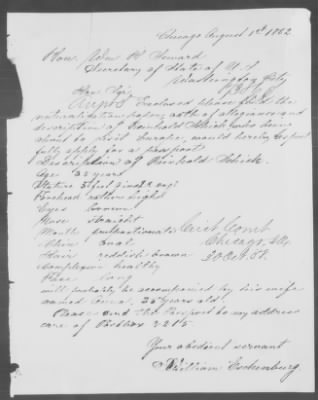 Chicago August 1st 1862
Hon. Wm H Seward
Secretary of State of U. S
Washington City
Hon Sir
Enclosed please find the
naturalization papers, oath of allegiance and
description of Reinhold Schick, who desires
about to visit Europe, would hereby respect
fully apply for a passport
Description of Reinhold Schick.
Age 32 years
Stature 5 feet
Forehead rather high
Eyes brown
Nose straight
Mouth proportionate
Chin oval
Hair reddish brown
Complexion healthy
Face long
will probably be accompanied by his wife
named Anna, 25 years old.
Please send the Passport to my address
care of Postbox 3215.
Chicago, Ills.
Your obedient servant
William Eschenburg.